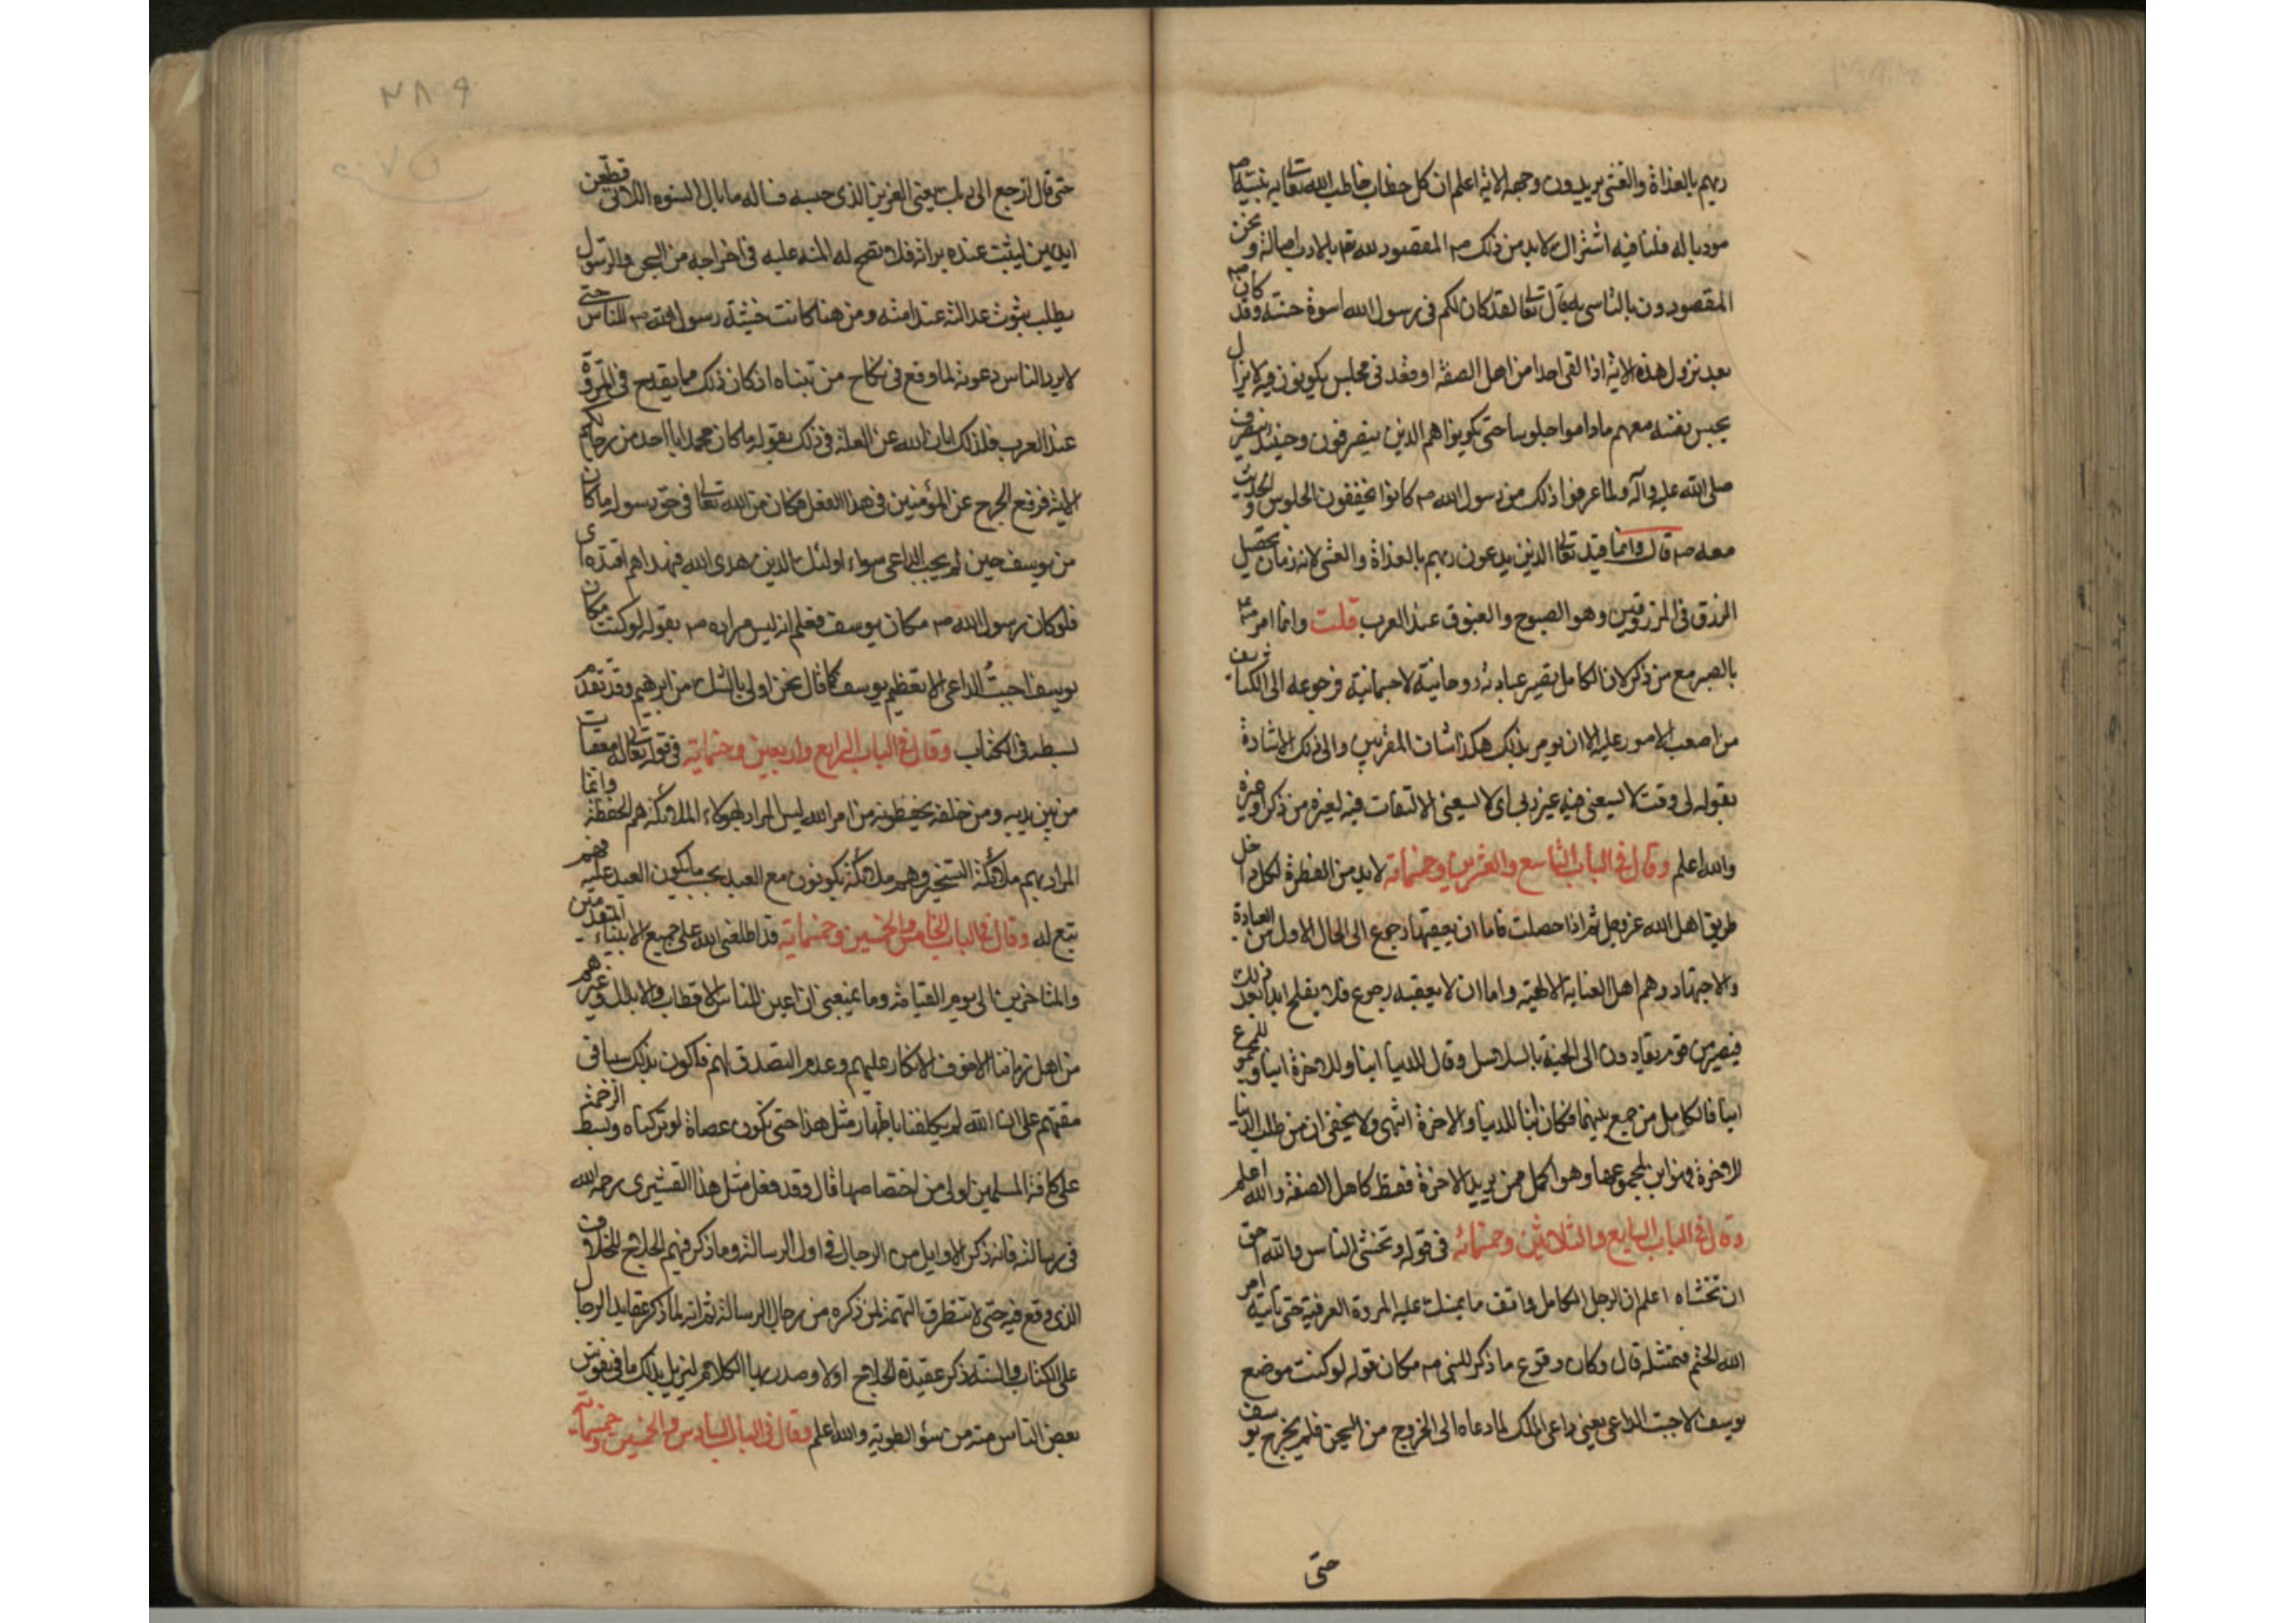 ربهم بالغداة والعشى يريدون وجهه الاية اعلم ان كل خطاب خاطب الله تعالى به نبيه ص
مودبا له فلنا فيه اشتراك لابد من ذلك ص المقصود لله تعا بالادب اصالة ونحن
المقصودون بالتاسى به قال تعالى لقد كان لكم فى رسول الله اسوة حسنة وقد كان ص
بعد نزول هذه الاية اذا لقى احدا من اهل الصفة او فقد فى مجلس يكونون فيه لا يزال
يحبس نفسه معهم ماداموا جلوسا حتى يكونوا هم الذين ينصرفون وحينئذ ينصرف
صلى الله عليه وآله ولما عرفوا ذلك من رسول الله ص كانوا يخففون الجلوس والحديث
معه ص قال وانما قيد تعالى الذين يدعون ربهم بالغداة والعشى لانه زمان تحصيل
الرزق فى المرزوقين وهو الصبوح والغبوق عند العرب قلت وانما امر ص
بالصبر مع من ذكر لان الكامل تصير عبادته روحانية لا جسمانية فرجوعه الى الكثايف
من اصعب الامور عليه الا ان يومر بذلك هكذا شان المقربين والى ذلك الاشارة
بقوله لى وقت لا يسعنى فيه غير ربى اى لا يسعنى الالتفات فيه لغيره من ذكر او غيره
والله اعلم وقال فى الباب التاسع والعشرين وخمسمائة لابد من الفطرة لكل داخل
طريق اهل الله عز وجل ثم اذا حصلت فاما ان يعقبها رجوع الى الحال الاول من العبادة
والاجتهاد وهم اهل العناية الالهية واما ان لا يعقبه رجوع فلا يفلح ابدا بعد ذلك
فيصير من قوم يقادون الى الجنة بالسلاسل وقال للدنيا ابنا وللاخرة ابنا وللمجموع
ابنا فالكامل من جمع بينهما فكان ابنا للدنيا والاخرة انتهى ولا يخفى ان من طلب الدنيا
للاخرة فهو ابن لمجموعهما وهو اكمل ممن يريد الاخرة فقط كاهل الصفة والله اعلم
وقال فى الباب السابع والثلاثين وخمسمائه فى قوله وتخشى الناس والله احق
ان تخشاه اعلم ان الرجل الكامل واقف ما يمسك عليه المروة العرفية حتى ياتيه امر
الله الحتم فيمتثله قال وكان وقوع ما ذكر للنبى ص مكان قوله لو كنت موضع
يوسف لاجبت الداعى يعنى داعى الملك لما دعاه الى الخروج من السجن فلم يخرج يوسف
حتى
حتى قال ارجع الى ربك يعنى العزيز الذى حبسه فساله ما بال النسوه اللاتى قطعن
ايديهن ليثبت عنده براته فلا تصح له المنه عليه فى اخراجه من السجن والرسول
يطلب ثبوت عدالته عند امته ومن هنا كانت خشية رسول الله ص للناس حتى
لا يرد الناس دعوته لما وقع فى نكاح من تبناه اذ كان ذلك مما يقدح فى المروة
عند العرب فلذلك ابان الله عن العلة فى ذلك بقوله ما كان محمد ابا احد من رجالكم
الاية فرفع الحرج عن المؤمنين فى هذا الفعل فكان من الله تعالى فى حق رسوله ما كان
من يوسف حين لم يجب الداعى سواء اولئك الذين هدى الله فبهداهم اقتده
فلو كان رسول الله ص مكان يوسف فعلم انه ليس مراده ص بقوله لو كنت مكان
يوسف لاجبت الداعى الا تعظيم يوسف كما قال نحن اولى بالشك من ابرهيم وقد تقدم
بسطه فى الكتاب وقال فى الباب الرابع واربعين وخمسمائة فى قوله تعالى له معقبات
من بين يديه ومن خلفه يحفظونه من امر الله ليس المراد بهؤلاء الملائكة هم الحفظة وانما
المراد بهم ملائكة التسخير وهم ملائكة يكونون مع العبد بحسب ما يكون العبد عليه فهم
تبع له وقال فى الباب الخامس والخمسين وخمسمائة قد اطلعنى الله على جميع الابناء المتقدمين
والمتاخرين الى يوم القيامة وما يمنعنى ان اعين للناس الاقطاب والابدال وغيرهم
من اهل زماننا الا خوف الانكار عليهم وعدم التصدق لهم فاكون بذلك سببا فى
مقتهم على ان الله لم يكلفنا باظهار مثل هذا حتى نكون عصاة لو تركناه وبسط الرحمة
على كافة المسلمين اولى من اختصاصها قال وقد فعل مثل هذا القشيرى رحمه الله
فى رسالته فانه ذكر الاوايل من الرجال فى اول الرسالة وما ذكر فيهم الحلاج للخلاف
الذى وقع فيه حتى لا تتطرق التهمة لمن ذكره من رجال الرسالة ثم انه لما ذكر عقايد الرجال
على الكتاب والسنة ذكر عقيدة الحلاج اولا وصدر بها الكلام ليزيل بذلك ما فى نفوس
بعض الناس منه من سؤ الطوية والله اعلم وقال فى الباب السادس والخمسين وخمسمائة